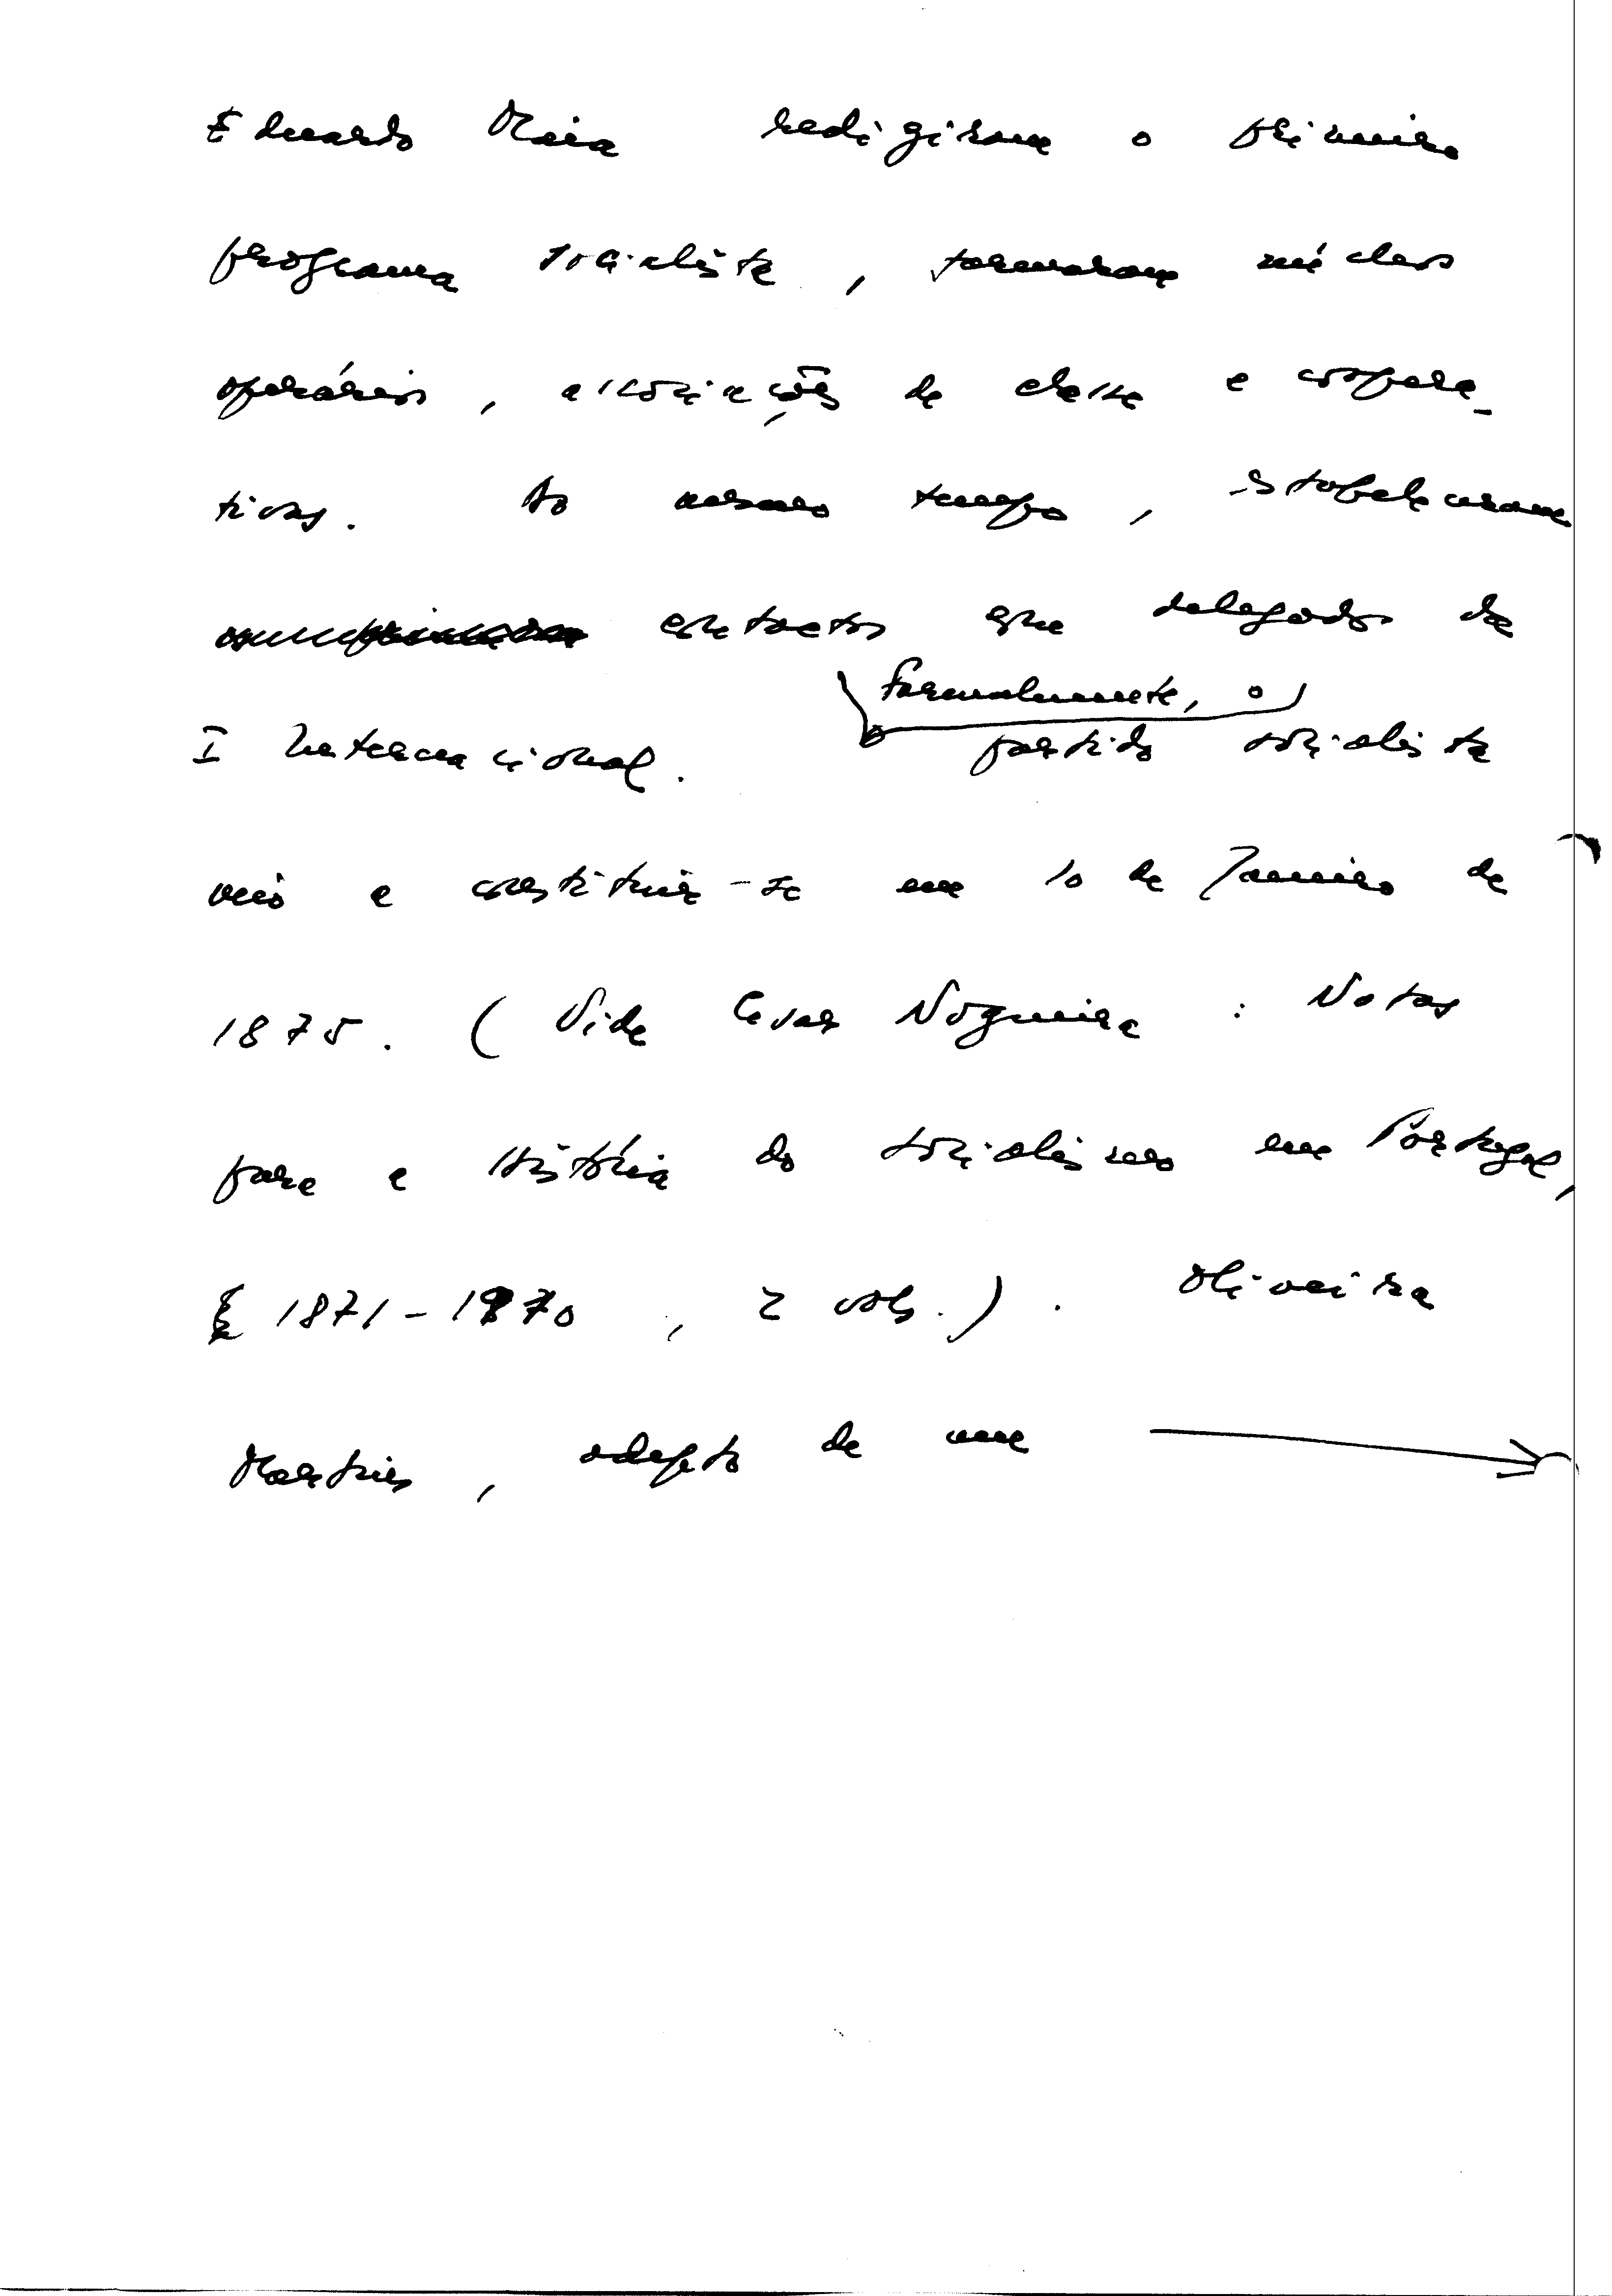 Eduardo Maia redigiram o primeiro
programa socialista, formaram núcleos
operários, associações de classe e coopera-
tivas. Ao mesmo tempo, estabeleceram
contactos com delegados da
I Internacional. Formalmente, o partido socialista
veio a constituir-se em 10 de Janeiro de
1875. (Vide Cesar Nogueira: Notas
para a História do socialismo em Portugal,
1871-1970, 2 vols.). Oliveira
Martins, adepto de um